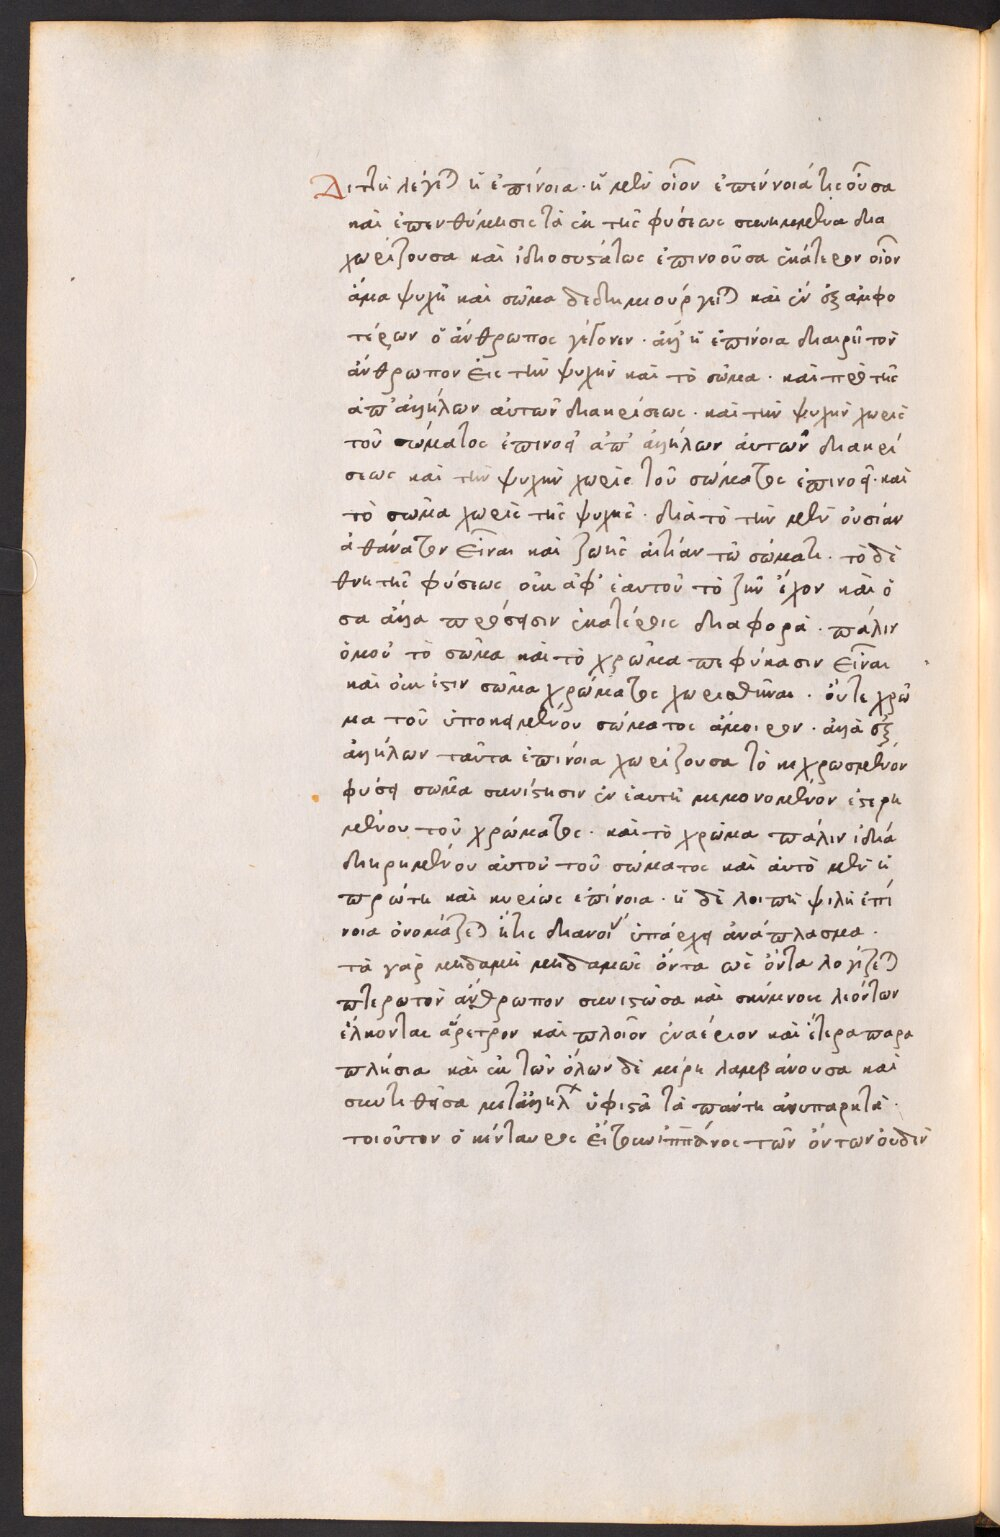 Διττὴ λέγεται ἡ ἐπίνοια· ἡ μὲν οἷον ἐπέννοιά τις οὖσα
καὶ ἐπενθύμησις τὰ ἐκ τῆς φύσεως συνημμένα δια
χωρίζουσα καὶ ἰδιοσυστάτως ἐπινοοῦσα ἑκάτερον οἷον
ἅμα ψυχὴ καὶ σῶμα δεδημιούργηται καὶ ἓν ἐξ ἀμφο
τέρων ὁ ἄνθρωπος γέγονεν· ἀλλ' ἡ ἐπίνοια διαιρεῖ τὸν
ἄνθρωπον εἰς τὴν ψυχὴν καὶ τὸ σῶμα· καὶ πρὸ τῆς
ἀπ' ἀλλήλων αὐτῶν διακρίσεως· καὶ τὴν ψυχὴν χωρὶς
τοῦ σώματος ἐπινοεῖ ἀπ' ἀλλήλων αὐτῶν διακρί
σεως καὶ τὴν ψυχὴν χωρὶς τοῦ σώματος ἐπινοεῖ· καὶ
τὸ σῶμα χωρὶς τῆς ψυχῆς· διὰ τὸ τὴν μὲν οὐσίαν
ἀθάνατον εἶναι καὶ ζωῆς αἰτίαν τῶ σώματι· τὸ δὲ
θνητῆς φύσεως οὐκ ἀφ' ἑαυτοῦ τὸ ζῆν ἔχον καὶ ὅ
σα ἄλλα πρόσεστιν ἑκατέροις διαφορά· πάλιν
ὁμοῦ τὸ σῶμα καὶ τὸ χρῶμα πεφύκασιν εἶναι
καὶ οὐκ ἔστιν σῶμα χρώματος χωρισθῆναι· οὔτε χρῶ
μα τοῦ ὑποκειμένου σώματος ἄμοιρον· ἀλλὰ ἐξ
ἀλλήλων ταῦτα ἐπίνοια χωρίζουσα τὸ κεχρωσμένον
φύσει σῶμα συνίστησιν ἐν ἑαυτῆ μεμονομένον ἐστερη
μένου τοῦ χρώματος· καὶ τὸ χρῶμα πάλιν ἰδιά
διηρημένου αὐτοῦ τοῦ σώματος καὶ αὐτὸ μὲν ἡ
πρώτη καὶ κυρίως ἐπίνοια· ἡ δὲ λοιπὴ ψιλὴ ἐπί
νοια ὀνομάζεται ἥτις διανοί ὑπάρχει ἀνάπλασμα·
τὰ γὰρ μηδαμῆ μηδαμῶς ὄντα ὡς ὄντα λογίζεται
πτερωτὸν ἄνθρωπον συνιστῶσα καὶ σκύμνους λεόντων
ἕλκοντας ἄρετρον καὶ πλοῖον ἐναέριον καὶ ἕτερα παρα
πλήσια καὶ ἐκ τῶν ὅλων δὲ μέρη λαμβάνουσα καὶ
συντιθεῖσα μετάλληλ ὑφιστᾶ τὰ πάντη ἀνυπαρκτὰ·
τοιοῦτον ὁ κένταυρος εἴτουν ἱπποκένος τῶν ὄντων οὐδὲν